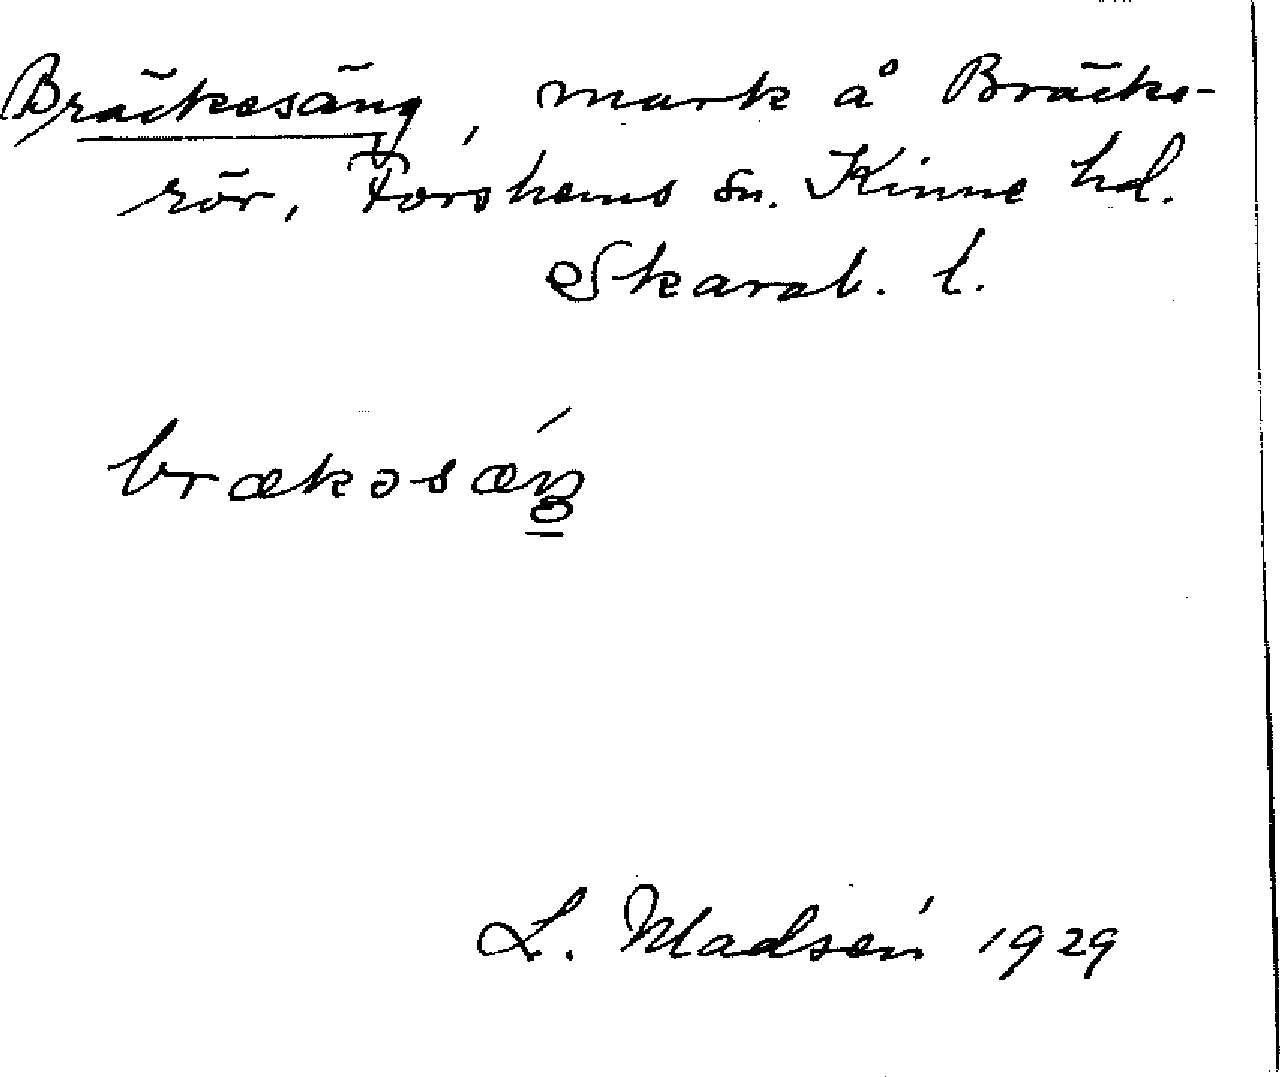 Bräckesäng, mark å Bräcke-
rör, Forshems sn. Kinne hd.
Skarab. l.
brækəsæ´ŋ
L. Madsén 1929